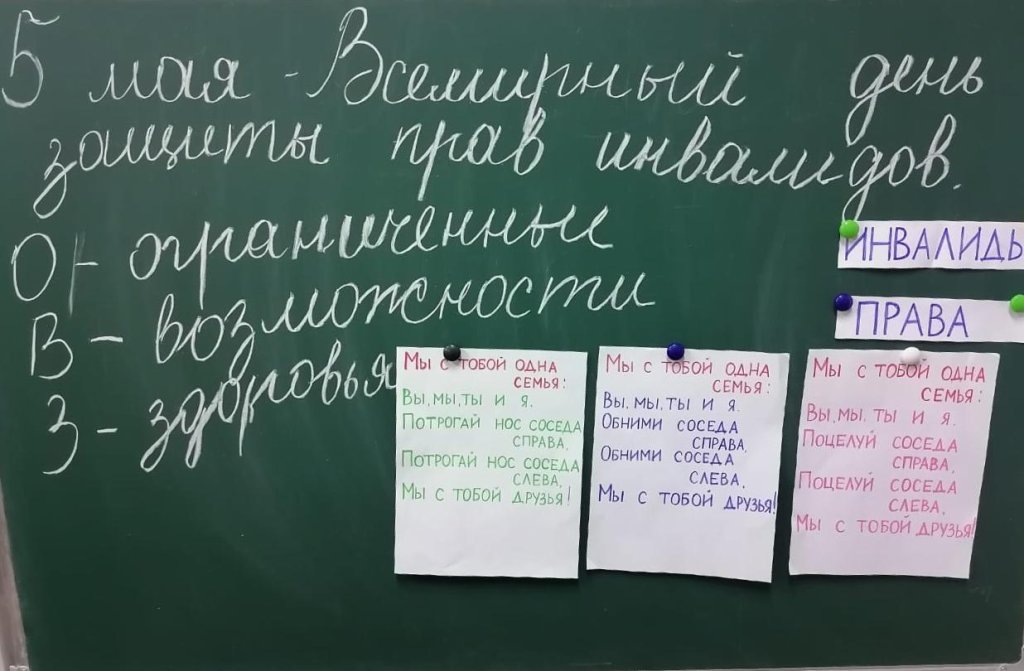 5 мая - Всемирный день
защиты прав инвалидов.
О - ограниченные
В - возможности
З - здоровья
ИНВАЛИДЫ
ПРАВА
Мы с тобой одна
семья:
Вы, мы, ты и я.
Потрогай нос соседа
справа,
Потрогай нос соседа
слева,
Мы с тобой друзья!
Мы с тобой одна
семья:
Вы, мы, ты и я.
Обними соседа
справа,
Обними соседа
слева,
Мы с тобой друзья!
Мы с тобой одна
семья:
Вы, мы, ты и я.
Поцелуй соседа
справа,
Поцелуй соседа
слева,
Мы с тобой друзья!